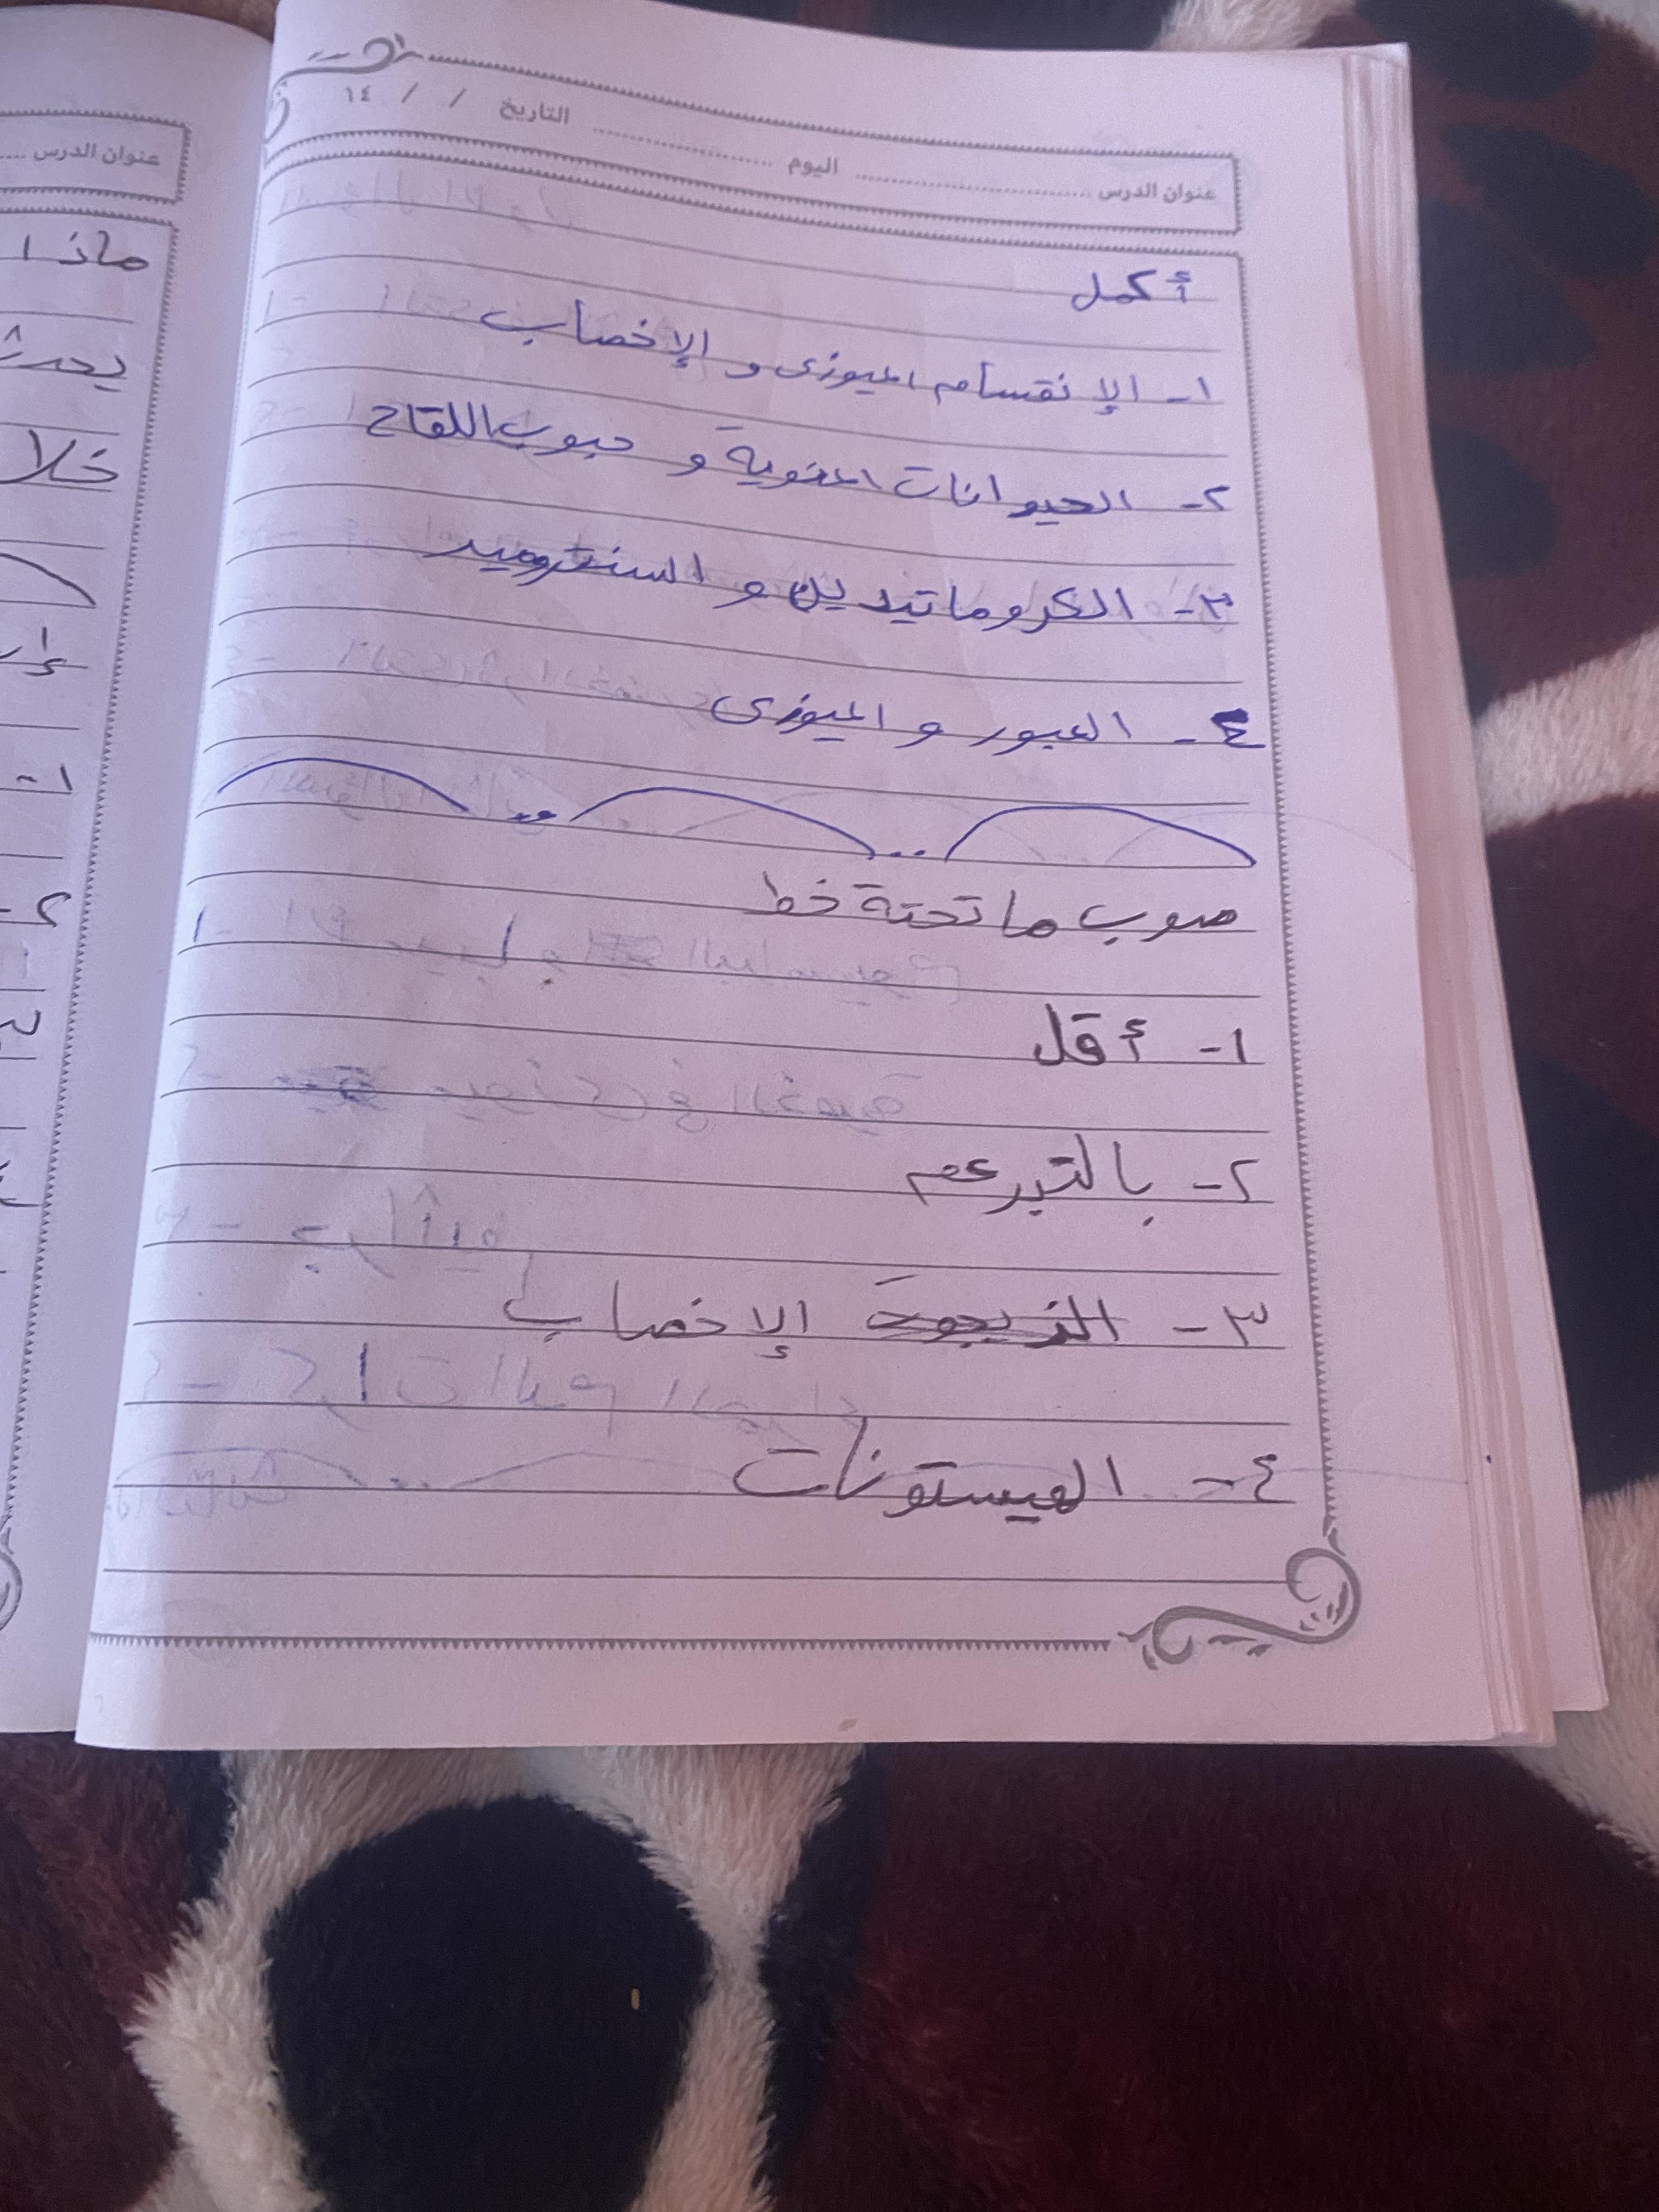 التاريخ / / ١٤
عنوان الدرس اليوم
أكمل
١- الإنقسام الميوزى و الإخصاب
٢- الحيوانات المنوية و حبوب اللقاح
٣- الكروماتيديان و السنترومير
٤- العبور و الميوزى
صوب ما تحتة خط
١- أقل
٢- بالتبرعم
٣- الزيجوت الإخصاب
٤- الهيستونات
عنوان الدرس
ماذا
يحدث
خلا
١-
٢-